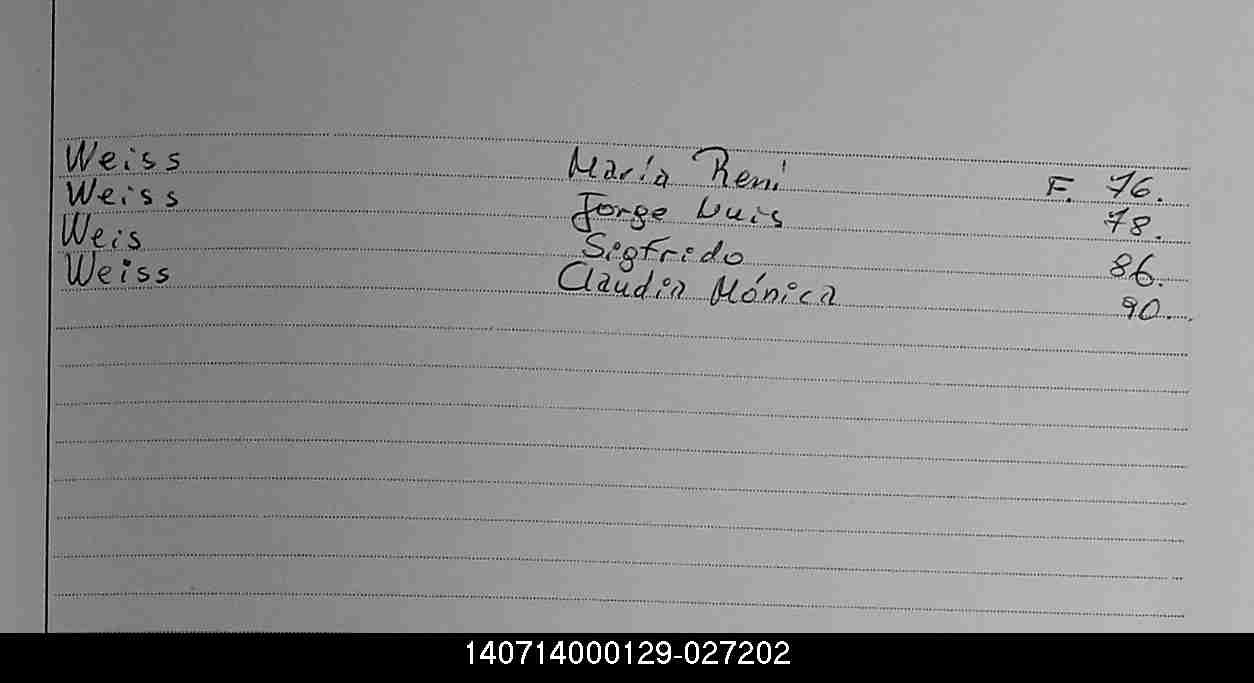 Weiss María Reni F. 76.
Weiss Jorge Luis 78.
Weis Sigfrido 86.
Weiss Claudia Mónica 90.
140714000129-027202